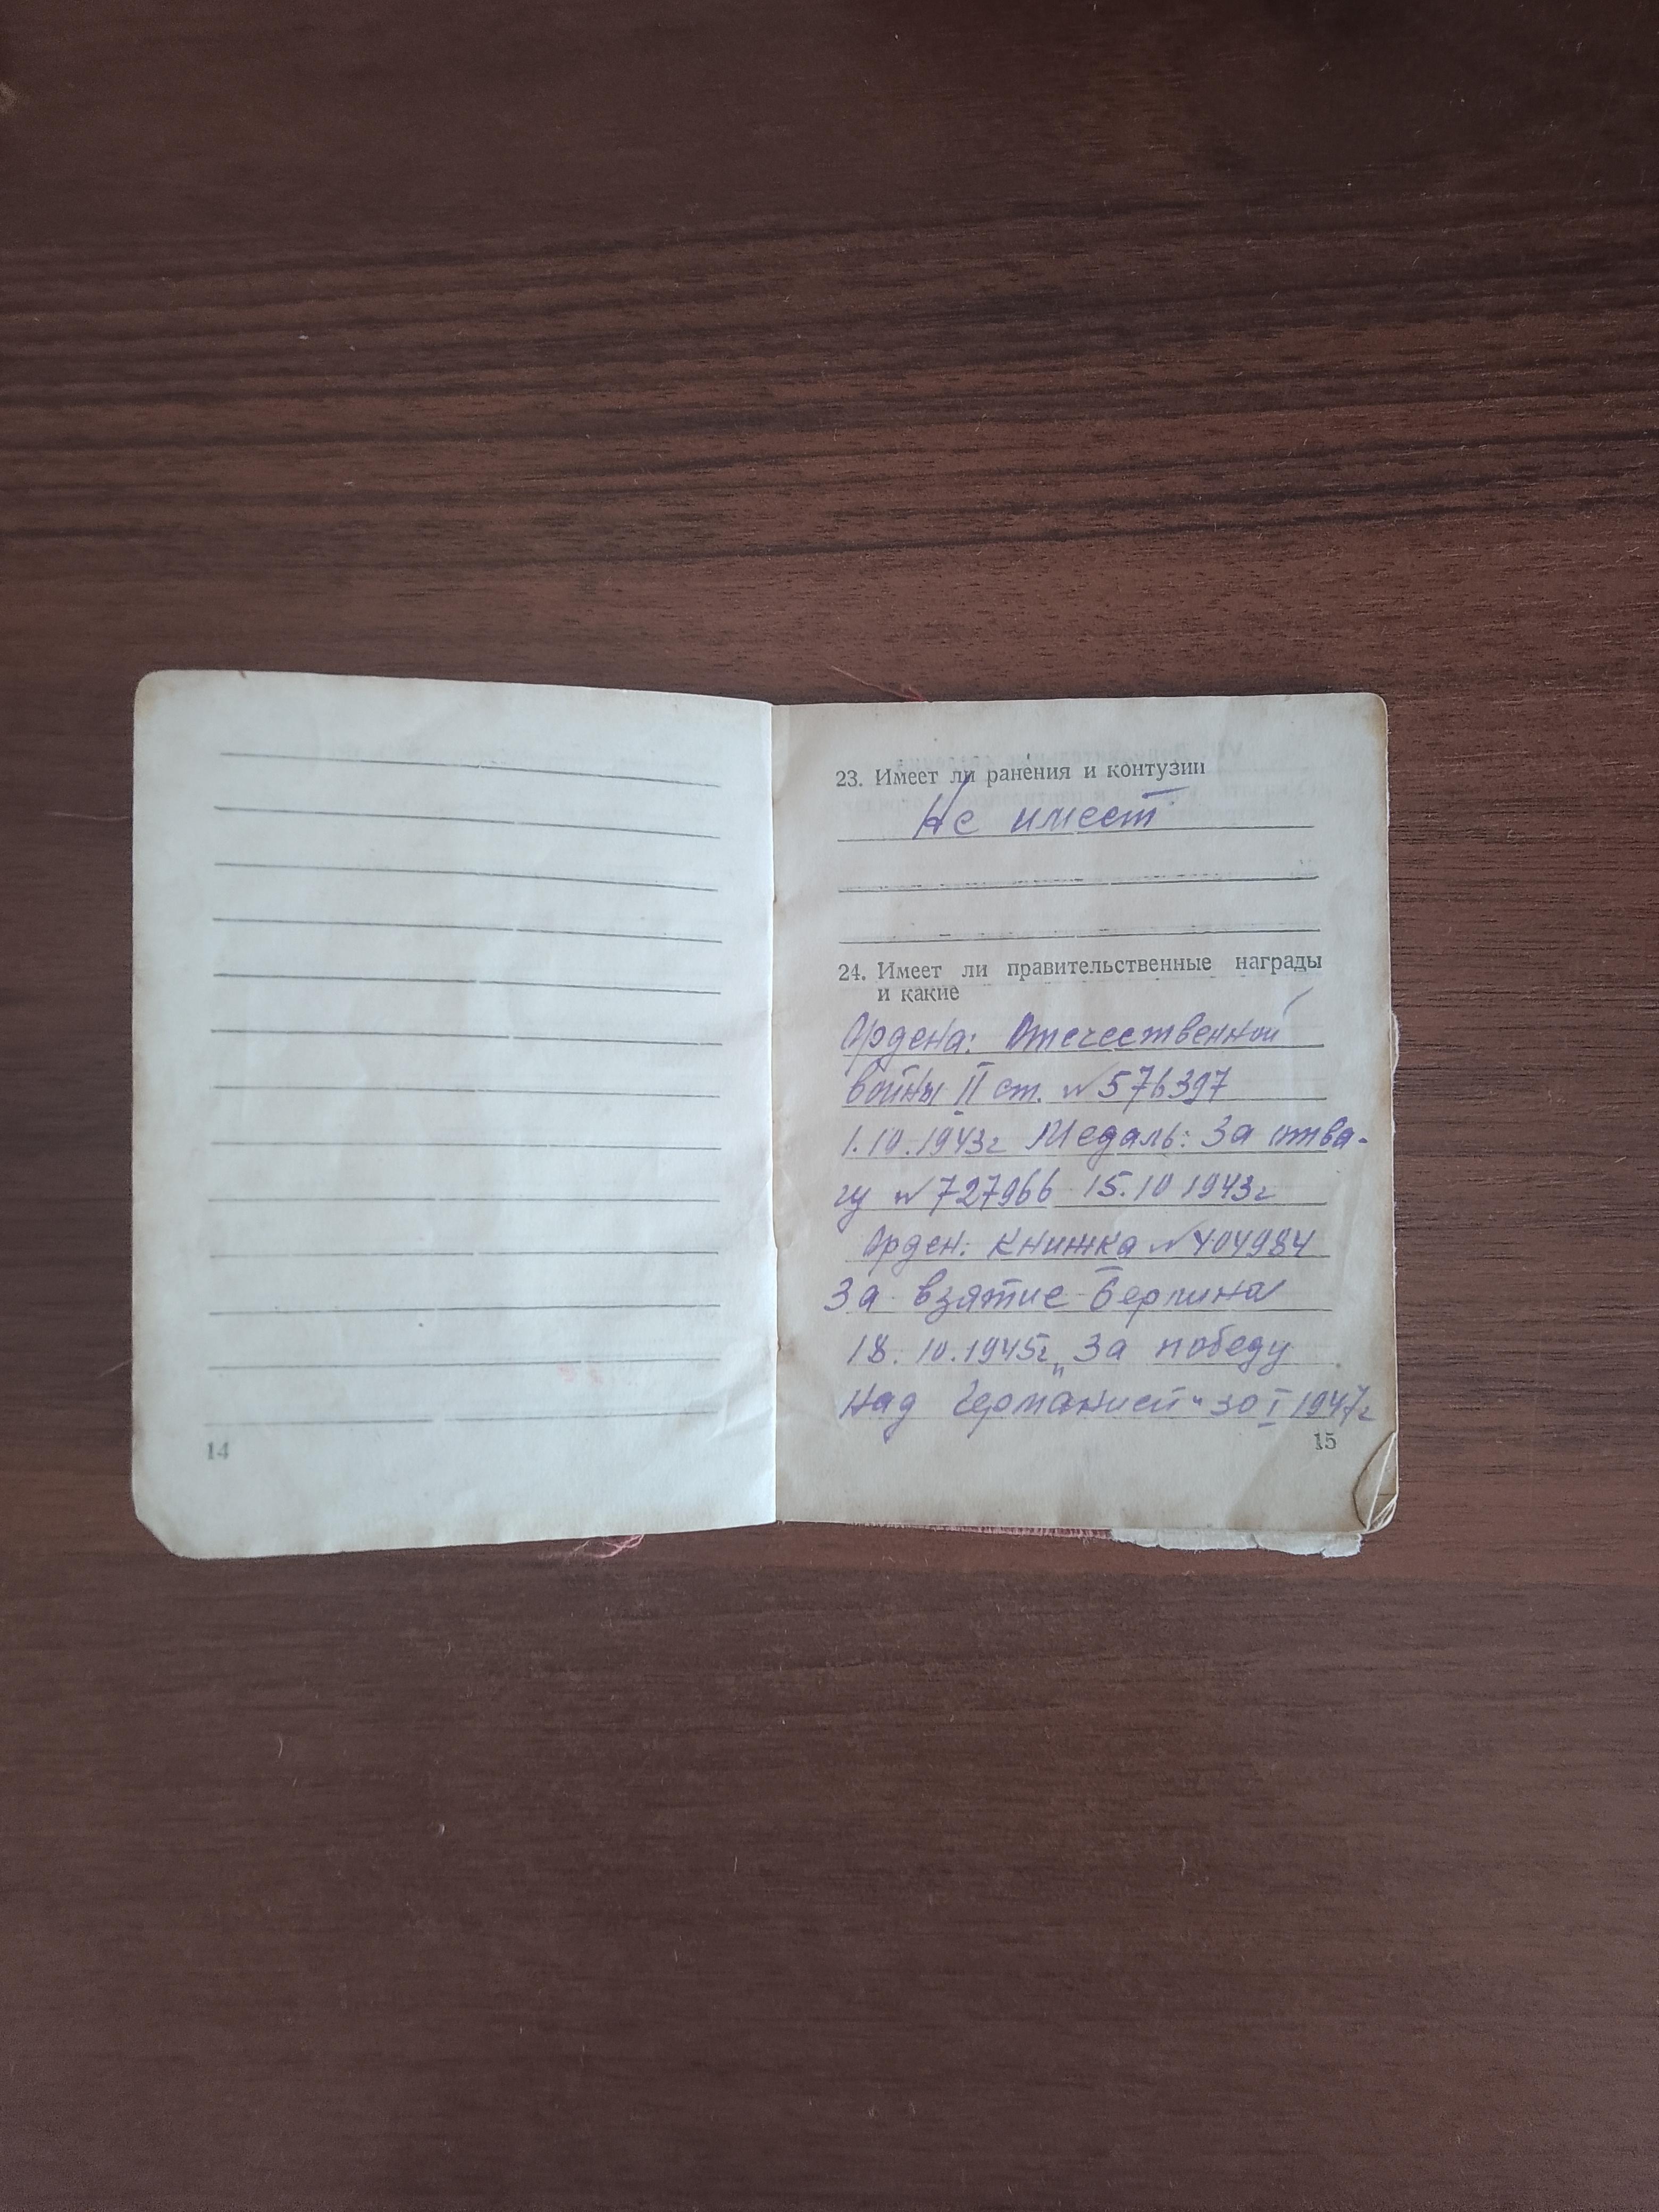 14
23. Имеет ли ранения и контузии
Не имеет
24. Имеет ли правительственные награды
и какие
Ордена: Отечественной
войны II ст. №576397
1.10.1943г Медаль: За отва-
гу №727966 15.10 1943г
Орден: книжка №404984
За взятие Берлина
18.10.1945г „За победу
над Германией“ 30 I 1947г
15